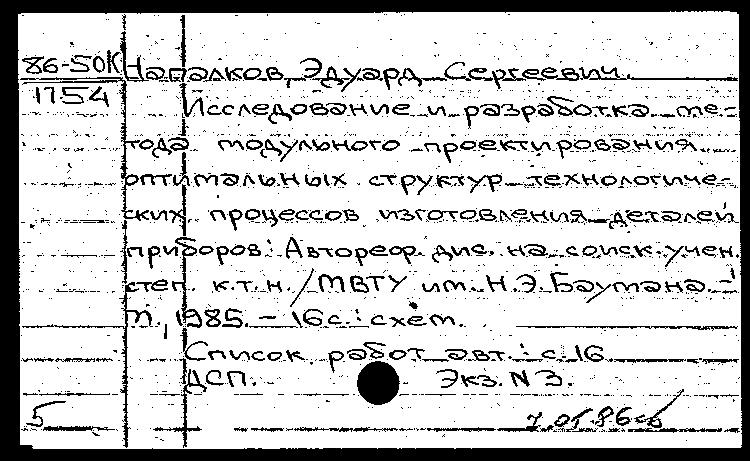 86-5ОК Напалков, Эдуард Сергеевич.
1754 Исследование и разработка ме-
тода модульного проектирования
оптимальных структур технологиче-
ских процессов изготовления деталей
приборов: Автореф. дис. на соиск. учен.
степ. к.т.н. / МВТУ им. Н.Э. Баумана. -
М., 1985. - 16 с.: схем.
Список работ авт.: с. 16
ДСП. Экз. N 3.
5